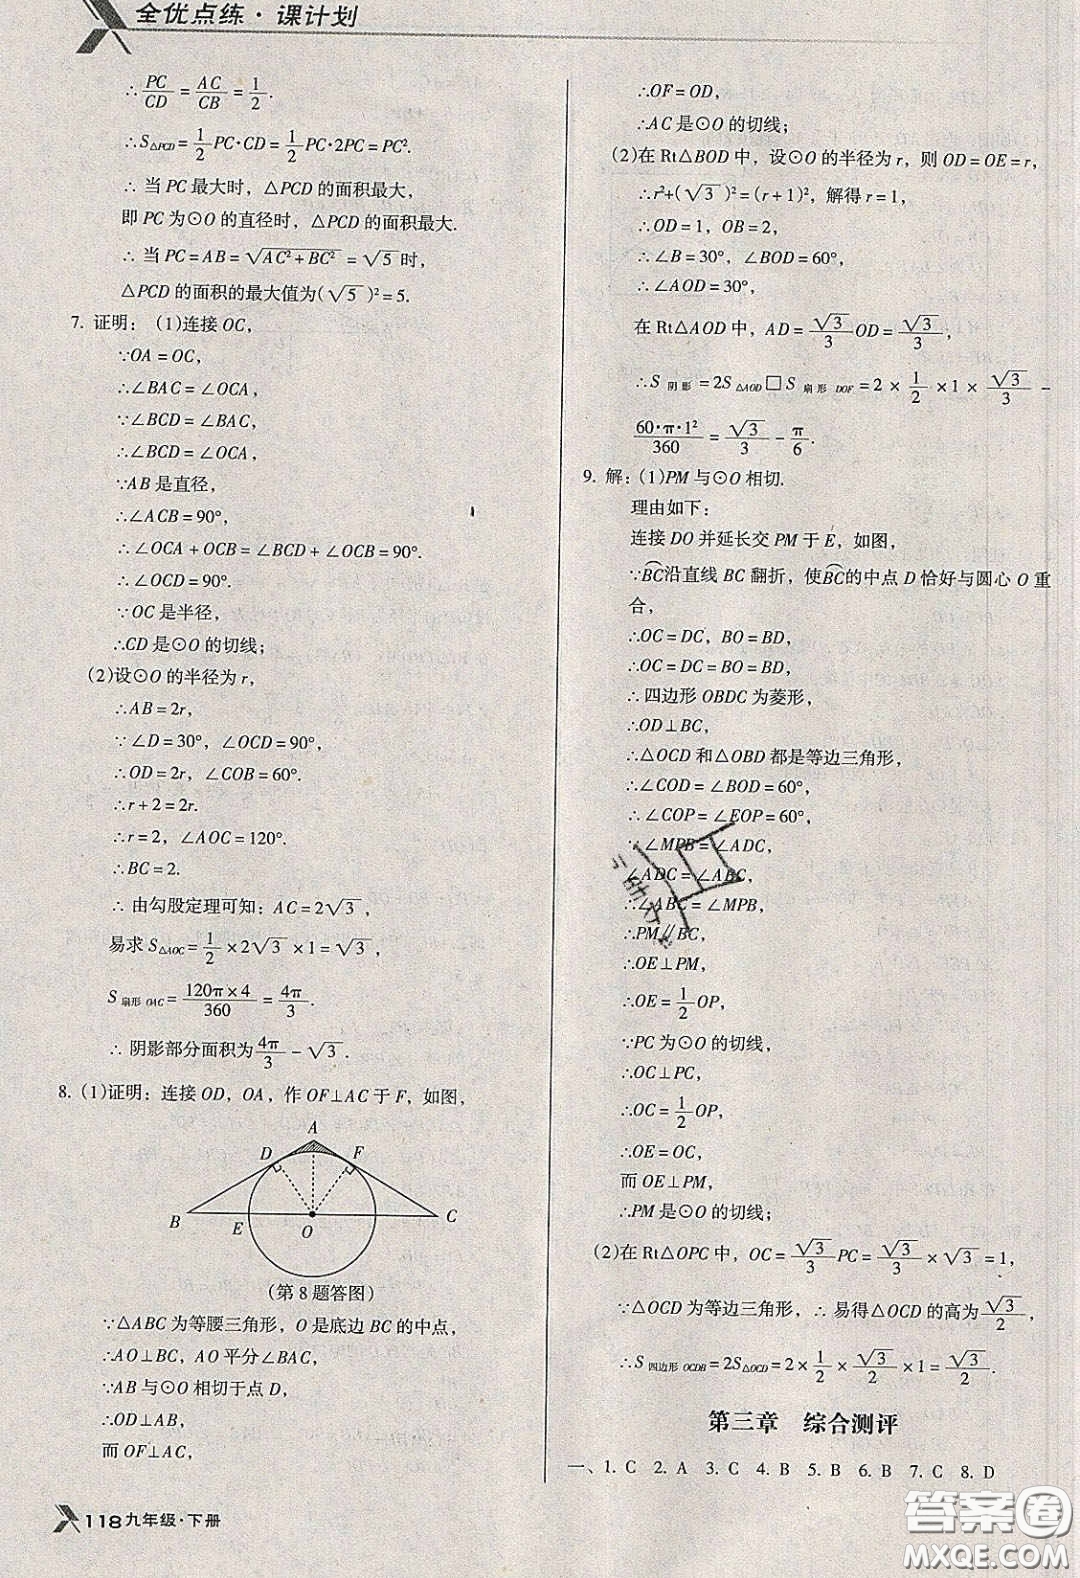 全优点练·课计划
∴PC/CD=AC/CB=1/2.
∴S△PCD=1/2PC·CD=1/2PC·2PC=PC².
∴当PC最大时，△PCD的面积最大，
即PC为⊙O的直径时，△PCD的面积最大.
∴当PC=AB=√(AC²+BC²)=√5时，
△PCD的面积的最大值为(√5)²=5.
7. 证明：(1)连接OC，
∵OA=OC，
∴∠BAC=∠OCA，
∵∠BCD=∠BAC，
∴∠BCD=∠OCA，
∵AB是直径，
∴∠ACB=90°，
∴∠OCA+OCB=∠BCD+∠OCB=90°.
∴∠OCD=90°.
∵OC是半径，
∴CD是⊙O的切线；
(2)设⊙O的半径为r，
∴AB=2r，
∵∠D=30°，∠OCD=90°，
∴OD=2r，∠COB=60°.
∴r+2=2r.
∴r=2，∠AOC=120°.
∴BC=2.
∴由勾股定理可知：AC=2√3，
易求S△AOC=1/2×2√3×1=√3，
S扇形OAC=120π×4/360=4π/3.
∴阴影部分面积为4π/3-√3.
8. (1)证明：连接OD，OA，作OF⊥AC于F，如图，
A
D F
B E O C
(第8题答图)
∵△ABC为等腰三角形，O是底边BC的中点，
∴AO⊥BC，AO平分∠BAC，
∵AB与⊙O相切于点D，
∴OD⊥AB，
而OF⊥AC，
∴OF=OD，
∴AC是⊙O的切线；
(2)在Rt△BOD中，设⊙O的半径为r，则OD=OE=r，
∴r²+(√3)²=(r+1)²，解得r=1，
∴OD=1，OB=2，
∴∠B=30°，∠BOD=60°，
∴∠AOD=30°，
在Rt△AOD中，AD=√3/3OD=√3/3，
∴S阴影=2S△AOD□S扇形DOF=2×1/2×1×√3/3-
60·π·1²/360=√3/3-π/6.
9. 解：(1)PM与⊙O相切.
理由如下：
连接DO并延长交PM于E，如图，
∵BC沿直线BC翻折，使BC的中点D恰好与圆心O重
合，
∴OC=DC，BO=BD，
∴OC=DC=BO=BD，
∴四边形OBDC为菱形，
∴OD⊥BC，
∴△OCD和△OBD都是等边三角形，
∴∠COD=∠BOD=60°，
∴∠COP=∠EOP=60°，
∵∠MPB=∠ADC，
∠ADC=∠ABC，
∴∠ABC=∠MPB，
∴PM∥BC，
∴OE⊥PM，
∴OE=1/2OP，
∵PC为⊙O的切线，
∴OC⊥PC，
∴OC=1/2OP，
∴OE=OC，
而OE⊥PM，
∴PM是⊙O的切线；
(2)在Rt△OPC中，OC=√3/3PC=√3/3×√3=1，
∵△OCD为等边三角形，∴易得△OCD的高为√3/2，
∴S四边形OCDB=2S△OCD=2×1/2×√3/2×1=√3/2.
第三章 综合测评
一、1. C 2. A 3. C 4. B 5. B 6. B 7. C 8. D
118九年级·下册
答案圈
MXQE.COM